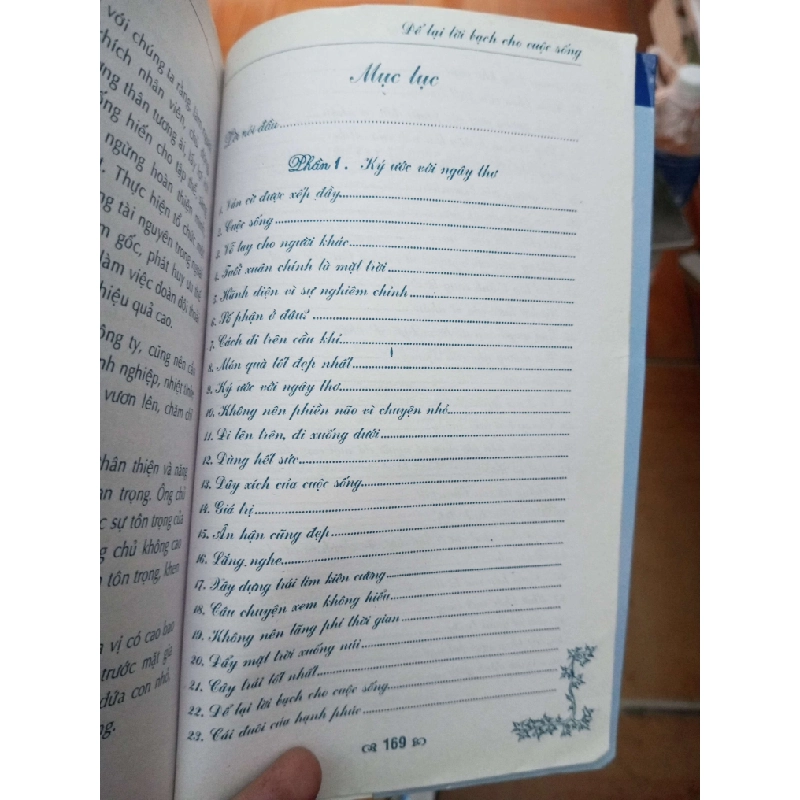 với chúng ta rằng
thích nhân viên, chủ
thân tương ái, lấy
hiến cho tập thể
ngừng hoàn thiện
Thực hiện tổ chức
tài nguyên trong
gốc, phát huy
làm việc đoàn đội,
hiệu quả cao.
ty, cũng nên
nghiệp, nhiệt
vươn lên, chăm
thân thiện và năng
trọng. Ông chủ
sự tôn trọng của
chủ không cao
tôn trọng, khen
vị có cao bao
trước mặt gia
đứa con nhỏ.
Để lại lời bạch cho cuộc sống
Mục lục
Lời nói đầu
Phần 1. Ký ước với ngây thơ
1. Ván cờ được xếp đầy
2. Cuộc sống
3. Vỗ tay cho người khác
4. Tuổi xuân chính là mặt trời
5. Hãnh diện vì sự nghiêm chỉnh
6. Số phận ở đâu?
7. Cách đi trên cầu khỉ
8. Món quà tốt đẹp nhất
9. Ký ước với ngây thơ
10. Không nên phiền não vì chuyện nhỏ
11. Đi lên trên, đi xuống dưới
12. Dùng hết sức
13. Dây xích của cuộc sống
14. Giá trị
15. Ân hận cũng đẹp
16. Lắng nghe
17. Xây dựng trái tim kiên cường
18. Câu chuyện xem không hiểu
19. Không nên lãng phí thời gian
20. Đẩy mặt trời xuống núi
21. Cây trái tốt nhất
22. Để lại lời bạch cho cuộc sống
23. Cái đuôi của hạnh phúc
169